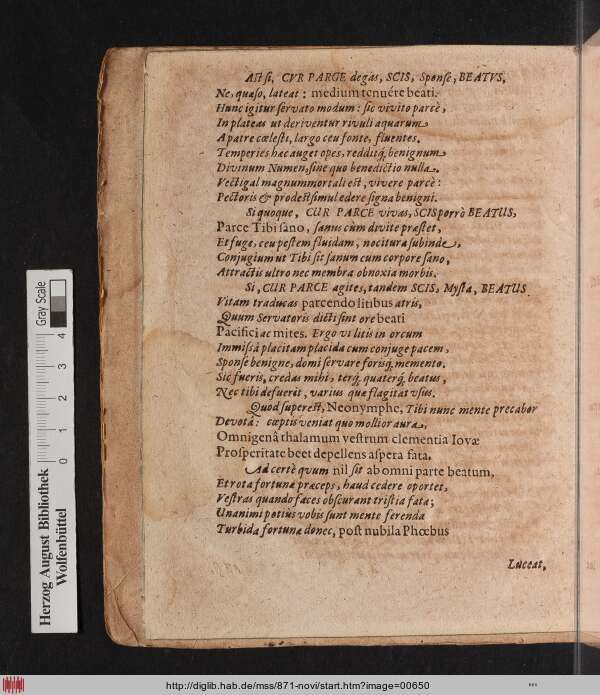 Ast si, CVR PARCE degas, SCIS, Sponse, BEATVS,
Ne, quæso, lateat: medium tenuére beati.
Hunc igitur servato modum: sic vivito parcè,
In plateas ut deriventur rivuli aquarum
A patre cœlesti, largo ceu fonte, fluentes.
Temperies hæc auget opes, redditq́; benignum
Divinum Numen, sine quo benedictio nulla.
Vectigal magnum mortali est, vivere parcè:
Pectoris & prodest simul edere signa benigni.
Si quoque, CUR PARCE vivas, SCIS porrò BEATUS,
Parce Tibi sano, sanus cùm divite præstet,
Et fuge, ceu pestem fluidam, nocitura subinde,
Conjugium ut Tibi sit sanum cum corpore sano,
Attractis ultro nec membra obnoxia morbis.
Si, CUR PARCE agites, tandem SCIS, Mysta, BEATUS
Vitam traducas parcendo litibus atris,
Quum Servatoris dicti sint ore beati
Pacifici ac mites. Ergo vi litis in orcum
Immissâ placitam placida cum conjuge pacem,
Sponse benigne, domi servare forisq́; memento.
Sic fueris, credas mihi, terq́; quaterq́; beatus,
Nec tibi defuerit, varius quæ flagitat usus.
Quod superest, Neonymphe, Tibi nunc mente precabor
Devotâ: cœptis veniat quo mollior aura,
Omnigenâ thalamum vestrum clementia Iovæ
Prosperitate beet depellens aspera fata.
Ad certè quum nil sit ab omni parte beatum,
Et rota fortunæ præceps, haud cedere oportet,
Vestras quando faces obscurant tristia fata;
Unanimi potius vobis sunt mente ferenda
Turbida fortunæ donec, post nubila Phœbus
Luceat,
Gray Scale
0 1 2 3 4
Herzog August Bibliothek
Wolfenbüttel
http://diglib.hab.de/mss/871-novi/start.htm?image=00650